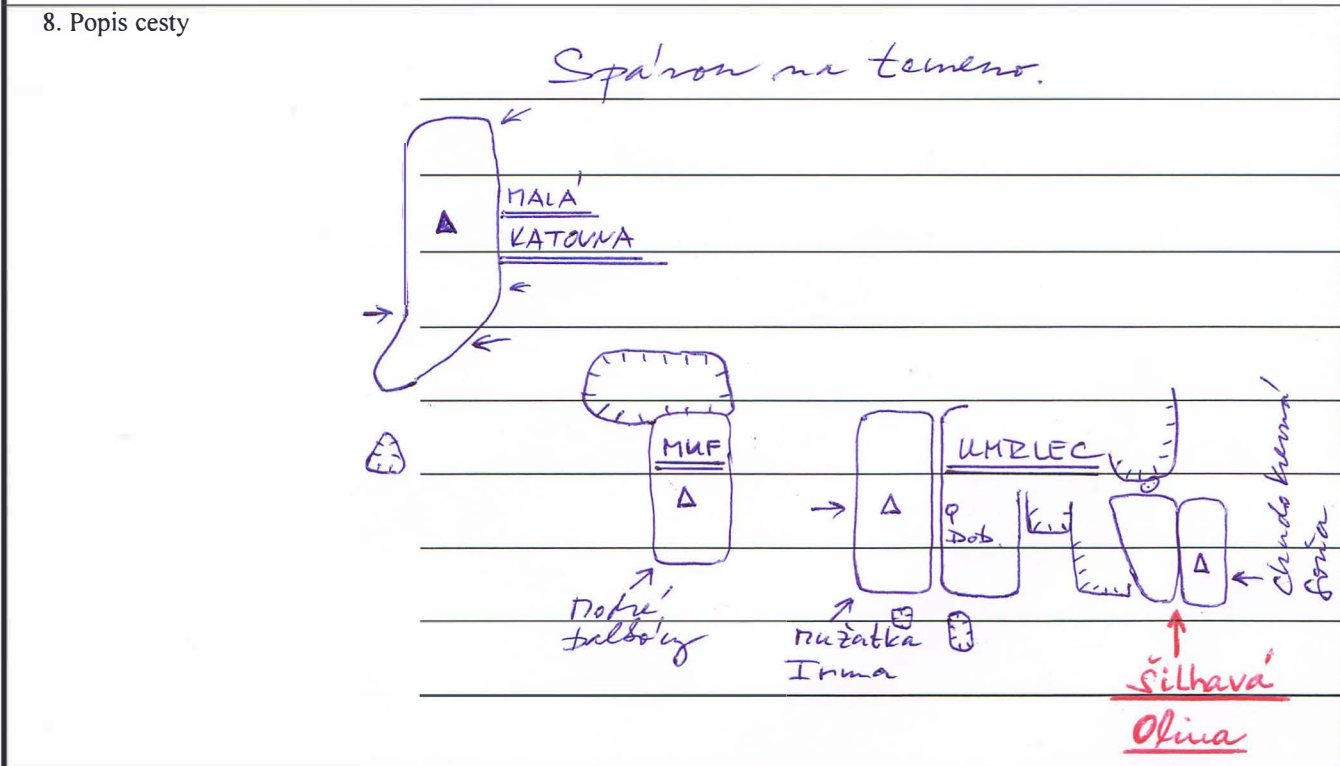 8. Popis cesty
Spárou na temeno.
MALÁ
KATOVNA
MUF
UMRLEC
Dob.
Modré
Mužatka
Irma
Chudokrevná
Soňa
Šilhavá
Oliva